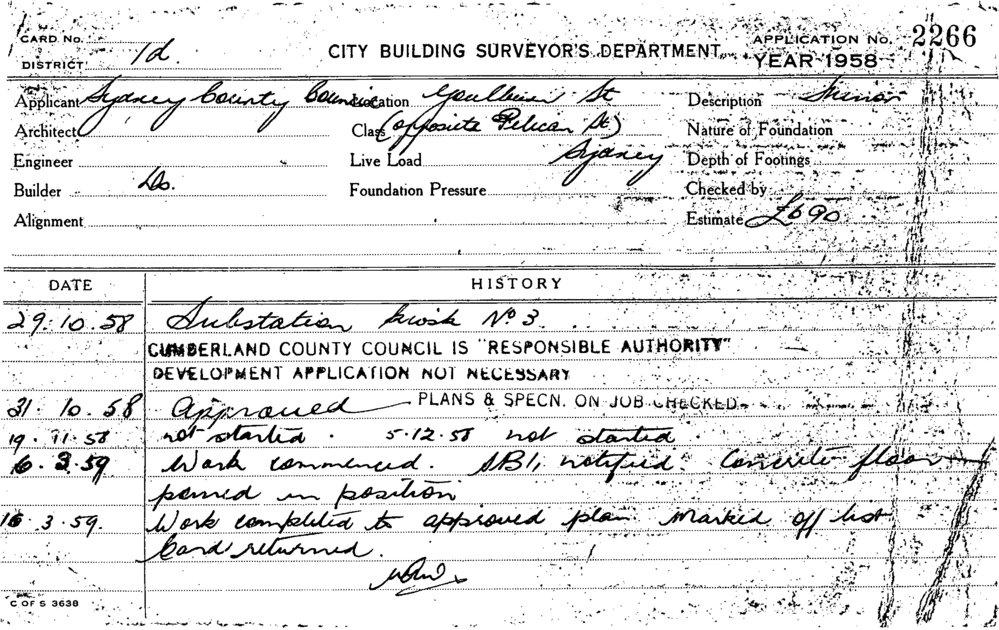 CARD No. CITY BUILDING SURVEYOR'S DEPARTMENT APPLICATION No. 2266
DISTRICT 1d. YEAR 1958
Applicant Sydney County Council Location Goulburn St Description Minor
Architect Class (opposite Pelican St) Nature of Foundation
Engineer Live Load Sydney Depth of Footings
Builder Do. Foundation Pressure Checked by
Alignment Estimate £690
DATE HISTORY
29.10.58 Substation kiosk No 3.
CUMBERLAND COUNTY COUNCIL IS "RESPONSIBLE AUTHORITY"
DEVELOPMENT APPLICATION NOT NECESSARY
31.10.58 Approved PLANS & SPECN. ON JOB CHECKED
19.11.58 not started. 5.12.58 not started.
6.3.59 Work commenced. notified. Concrete floor
poured in position
16.3.59. Work completed to approved plan. Marked off list
Card returned.
C OF S 3638